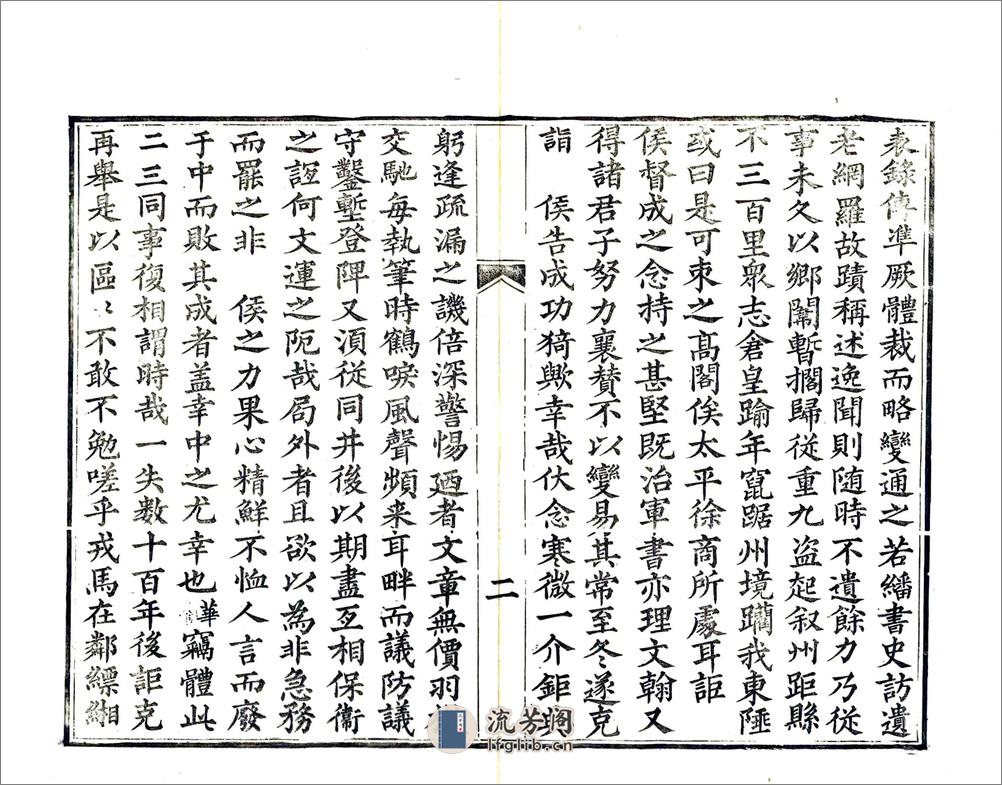 表錄傳準厥體裁而略變通之若繙書史訪遺
老網羅故蹟稱述逸聞則随時不遺餘力乃從
事未久以鄉闈暫擱歸從重九盗起叙州距縣
不三百里衆志倉皇踰年竄踞州境躪我東陲
或曰是可束之髙閣俟太平徐商所處耳詎
侯督成之念持之甚堅既治軍書亦理文翰又
得諸君子努力襄賛不以變易其常至冬遂克
詣　侯告成功猗歟幸哉伏念寒微一介鉅
二
躬逢疏漏之譏倍深警惕廼者文章無價羽
交馳每執筆時鶴唳風聲頻来耳畔而議防議
守鑿塹登陴又須從同井後以期盡互相保衞
之誼何文運之阨哉局外者且欲以為非急務
而罷之非　侯之力果心精鮮不恤人言而廢
于中而敗其成者盖幸中之尤幸也華竊體此
二三同事復相謂時哉一失数十百年後詎克
再舉是以區〻不敢不勉嗟乎戎馬在鄰縹緗
流芳阁
lfglib.cn